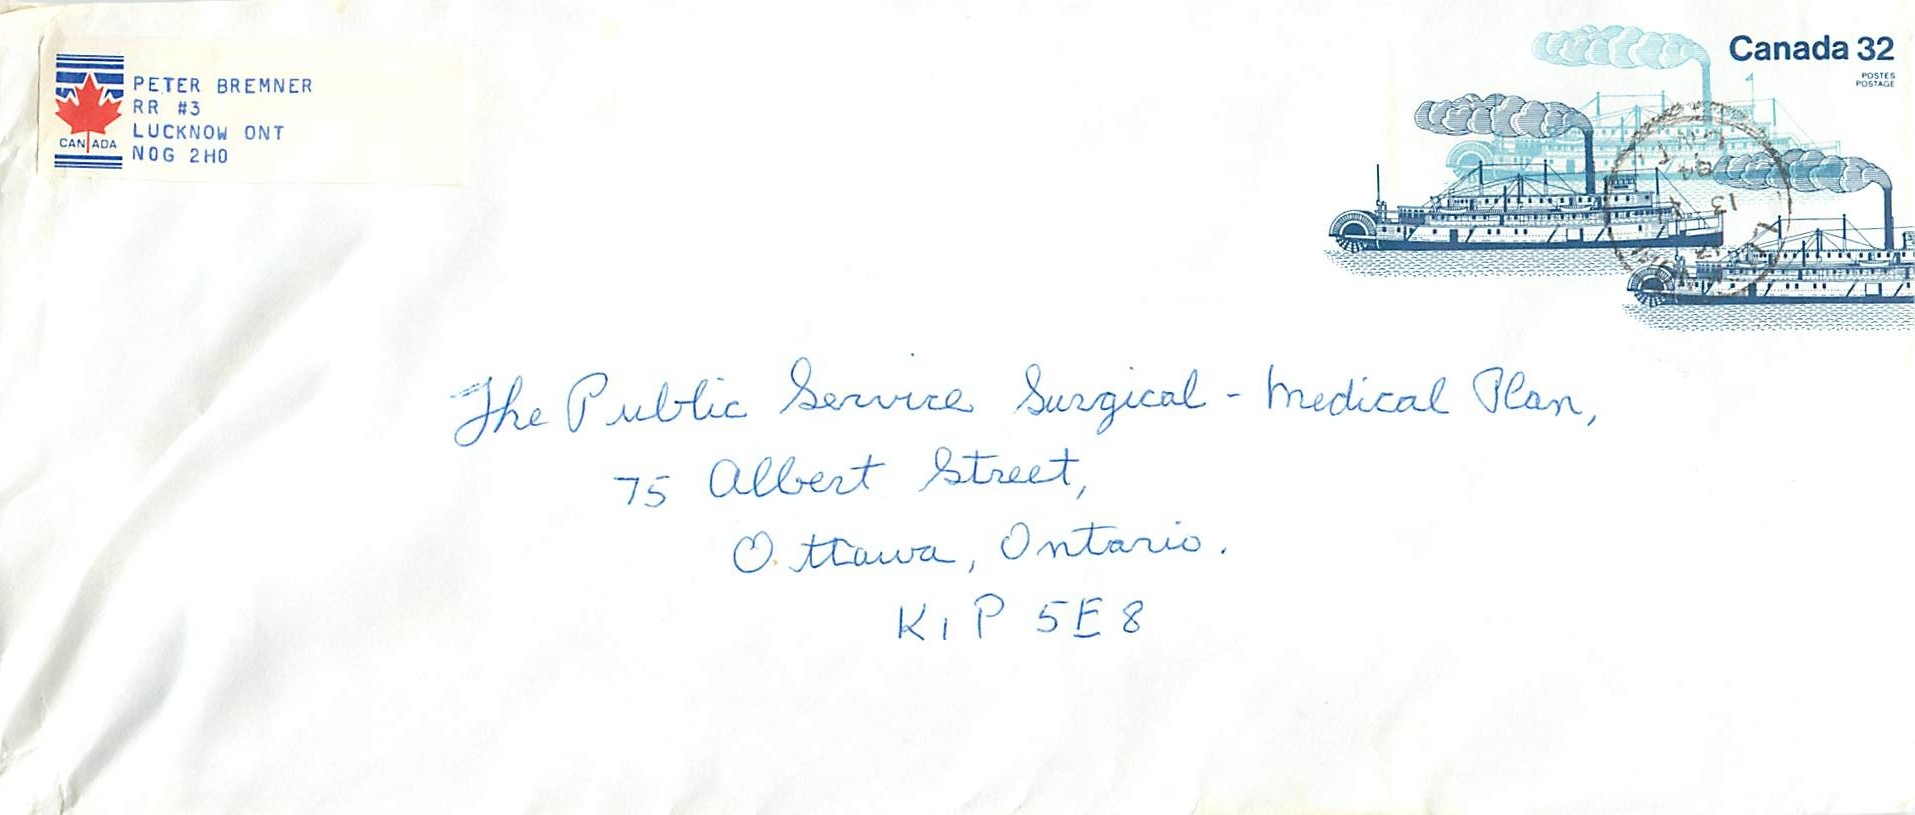 PETER BREMNER
RR #3
LUCKNOW ONT
NOG 2HO
CANADA
Canada 32
POSTES
POSTAGE
13
84
The Public Service Surgical - Medical Plan,
75 Albert Street,
Ottawa, Ontario.
K1P 5E8